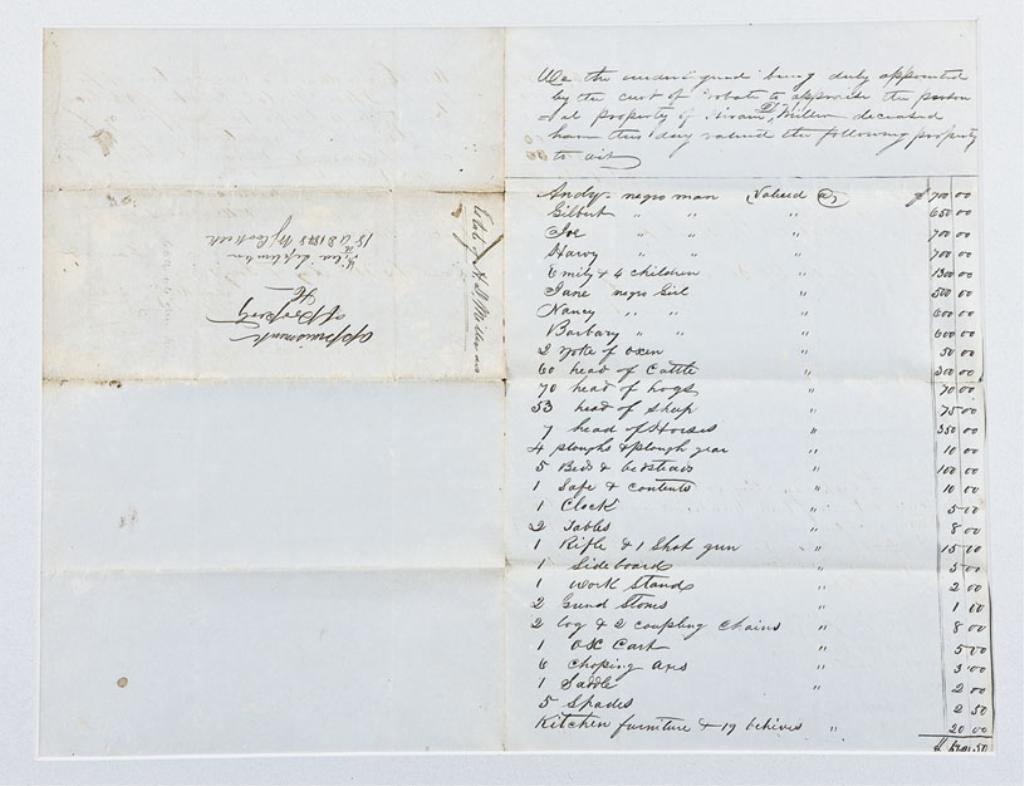 We the undersigned being duly appointed
by the curt of Probate to appraise the person
al property of Hiram D. Miller deceased
have this day valued the following property
to wit
Andy. negro man Valued @ $ 700 00
Gilbert " " " 650 00
Joe " " " 700 00
Harvy " " " 700 00
Emily & 4 children " 1300 00
Jane negro Girl " 500 00
Nancy " " 600 00
Barbary " " 600 00
2 yoke of oxen " 50 00
60 head of Cattle " 300 00
70 head of hogs " 70 00
53 head of Sheep " 75 00
7 head of Horses " 350 00
4 ploughs & plough gear " 10 00
5 Beds & bedsteads " 100 00
1 Safe & contents " 10 00
1 Clock " 5 00
2 Tables " 8 00
1 Rifle & 1 Shot gun " 15 00
1 Sideboard " 5 00
1 work Stand " 2 00
2 Grind Stones " 1 00
2 log & 2 coupling Chains " 8 00
1 ox Cart " 5 00
6 Choping Axes " 3 00
1 Saddle " 2 00
5 Spades 2 50
Kitchen furniture & 19 behives " 20 00
$ .50
Estate of H D Miller
appraisment
of Property
&c
Filed September
15th A D 1848